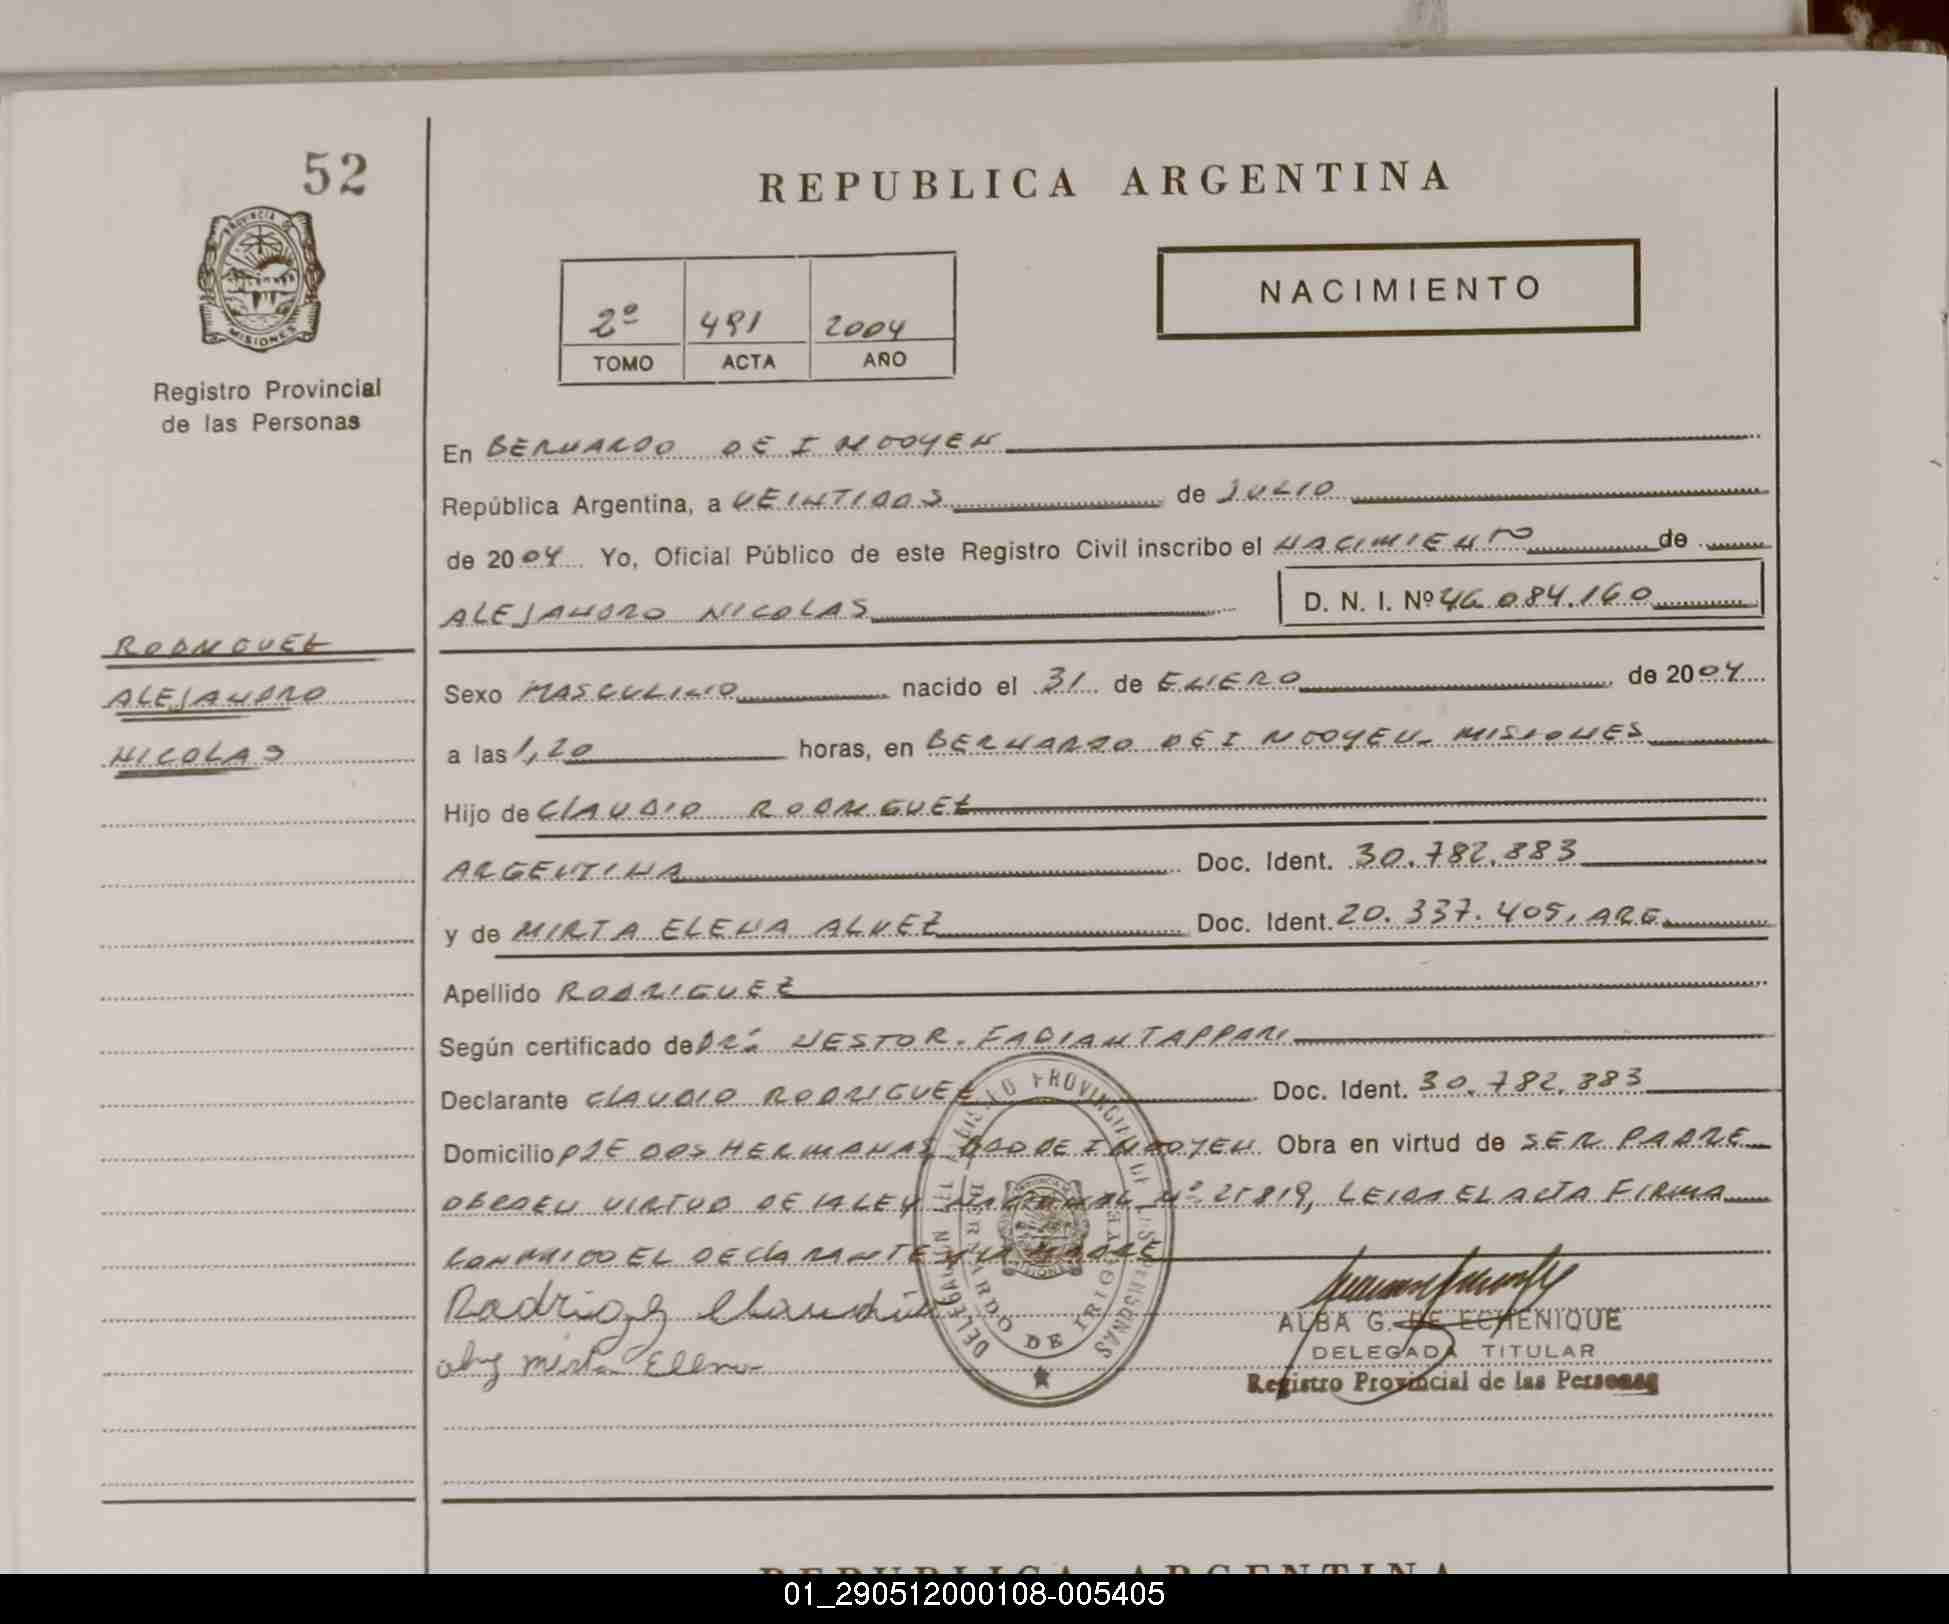 52
REPUBLICA ARGENTINA
NACIMIENTO
2º 491 2004
TOMO ACTA AÑO
PROVINCIA DE
MISIONES
Registro Provincial
de las Personas
En BERNARDO DE IRIGOYEN
República Argentina, a VEINTIDOS de JULIO
de 2004 Yo, Oficial Público de este Registro Civil inscribo el NACIMIENTO de
ALEJANDRO NICOLAS D. N. I. Nº 46.084.160
RODRIGUEZ
ALEJANDRO
NICOLAS
Sexo MASCULINO nacido el 31 de ENERO de 2004
a las 1,20 horas, en BERNARDO DE IRIGOYEN. MISIONES
Hijo de CLAUDIO RODRIGUEZ
ARGENTINA Doc. Ident. 30.782.883
y de MIRTA ELENA ALVEZ Doc. Ident. 20.337.405. ARG.
Apellido RODRIGUEZ
Según certificado de Dr. NESTOR FABIAN TAPPARI
Declarante CLAUDIO RODRIGUEZ Doc. Ident. 30.782.883
Domicilio PJE DOS HERMANAS BDO DE IRIGOYEN Obra en virtud de SER PADRE
OBRO EN VIRTUD DE LA LEY NACIONAL Nº 25819, LEIDA EL ACTA FIRMA
CONMIGO EL DECLARANTE Y LA MADRE
ALBA G. DE ECHENIQUE
DELEGADA TITULAR
Registro Provincial de las Personas
REGISTRO PROVINCIAL DE LAS PERSONAS
BERNARDO DE IRIGOYEN
REPUBLICA ARGENTINA
01_290512000108-005405